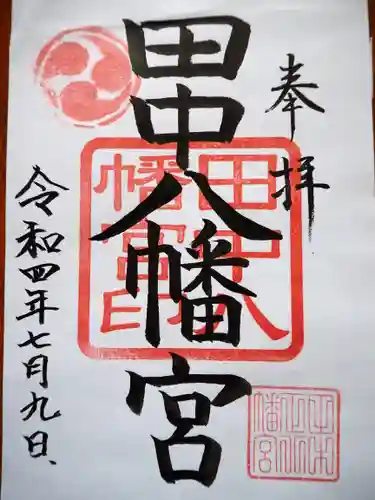 奉拝
田中八幡宮
令和四年七月九日、
田中八
幡宮印